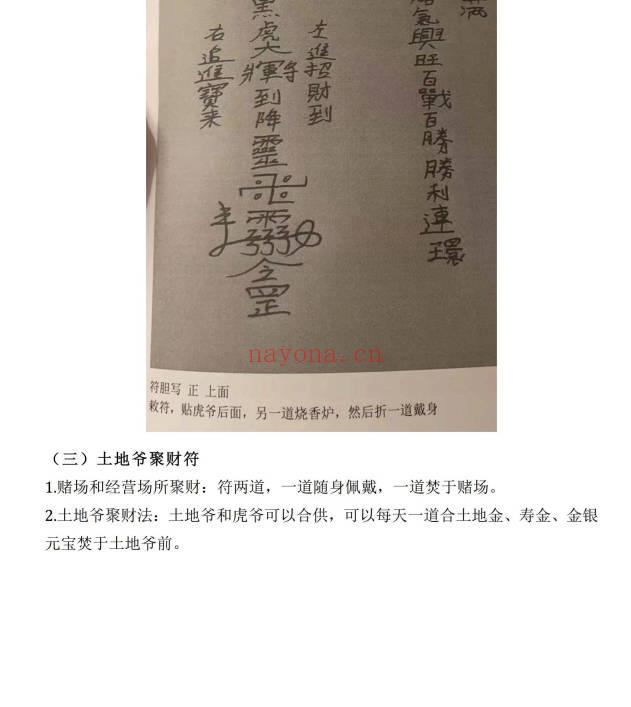 满
氣興旺百戰百勝勝利連環
左進招財到
黑虎大將軍到降靈
右追進寶来
罡
nayona.cn
符胆写 正 上面
敕符，贴虎爷后面，另一道烧香炉，然后折一道戴身
（三）土地爷聚财符
1.赌场和经营场所聚财：符两道，一道随身佩戴，一道焚于赌场。
2.土地爷聚财法：土地爷和虎爷可以合供，可以每天一道合土地金、寿金、金银
元宝焚于土地爷前。